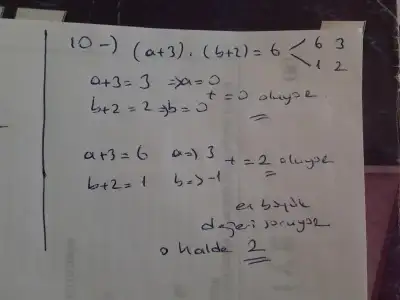 10-) (a+3).(b+2)=6 < 6 3
1 2
a+3=3 ⇒a=0
b+2=2⇒b=0 + =0 oluyor
a+3=6 a⇒3
b+2=1 b=>-1 + =2 oluyor
en büyük
değeri soruyor
o halde 2